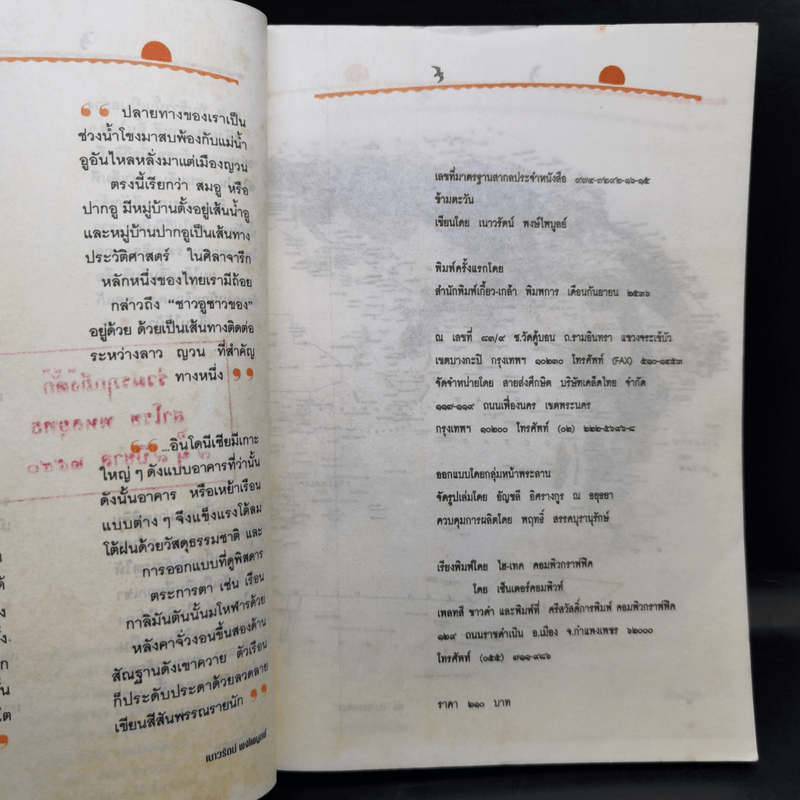 ❝ ปลายทางของเราเป็น
ช่วงน้ำโขงมาสบพ้องกับแม่น้ำ
อูอันไหลหลั่งมาแต่เมืองญวน
ตรงนี้เรียกว่า สมอู หรือ
ปากอู มีหมู่บ้านตั้งอยู่เส้นน้ำอู
และหมู่บ้านปากอูเป็นเส้นทาง
ประวัติศาสตร์ ในศิลาจารึก
หลักหนึ่งของไทยเรามีถ้อย
กล่าวถึง “ชาวอูชาวของ”
อยู่ด้วย ด้วยเป็นเส้นทางติดต่อ
ระหว่างลาว ญวน ที่สำคัญ
ทางหนึ่ง ❞
❝ ...อินโดนีเซียมีเกาะ
ใหญ่ ๆ ดังแบบอาคารที่ว่านั้น
ดังนั้นอาคาร หรือเหย้าเรือน
แบบต่าง ๆ จึงแข็งแรงโต้ลม
โต้ฝนด้วยวัสดุธรรมชาติ และ
การออกแบบที่ดูพิสดาร
ตระการตา เช่น เรือน
กาลิมันตันนั้นมโหฬารด้วย
หลังคาจั่วงอนขึ้นสองด้าน
สัณฐานดังเขาควาย ตัวเรือน
ก็ประดับประดาด้วยลวดลาย
เขียนสีสันพรรณรายนัก ❞
เนาวรัตน์ พงษ์ไพบูลย์
เลขที่มาตรฐานสากลประจำหนังสือ ๙๗๔-๗๒๙๒-๑๖-๑๕
ข้ามตะวัน
เขียนโดย เนาวรัตน์ พงษ์ไพบูลย์
พิมพ์ครั้งแรกโดย
สำนักพิมพ์เกี้ยว-เกล้า พิมพการ เดือนกันยายน ๒๕๓๖
ณ เลขที่ ๘๓/๙ ซ.วัดคู้บอน ถ.รามอินทรา แขวงจระเข้บัว
เขตบางกะปิ กรุงเทพฯ ๑๐๒๓๐ โทรศัพท์ (FAX) ๕๑๐-๑๔๕๓
จัดจำหน่ายโดย สายส่งศึกษิต บริษัทเคล็ดไทย จำกัด
๑๑๗-๑๑๙ ถนนเฟื่องนคร เขตพระนคร
กรุงเทพฯ ๑๐๒๐๐ โทรศัพท์ (๐๒) ๒๒๒-๕๖๙๖-๘
ออกแบบโดยกลุ่มหน้าพระลาน
จัดรูปเล่มโดย อัญชลี อิศรางกูร ณ อยุธยา
ควบคุมการผลิตโดย พฤทธิ์ สรรคบุรานุรักษ์
เรียงพิมพ์โดย ไฮ-เทค คอมพิวกราฟฟิค
โดย เซ็นเตอร์คอมพิวท์
เพลทสี ขาวดำ และพิมพ์ที่ ศรีสวัสดิ์การพิมพ์ คอมพิวกราฟฟิค
๑๒๙ ถนนราชดำเนิน อ.เมือง จ.กำแพงเพชร ๖๒๐๐๐
โทรศัพท์ (๐๕๕) ๗๑๑-๙๘๖
ราคา ๒๑๐ บาท